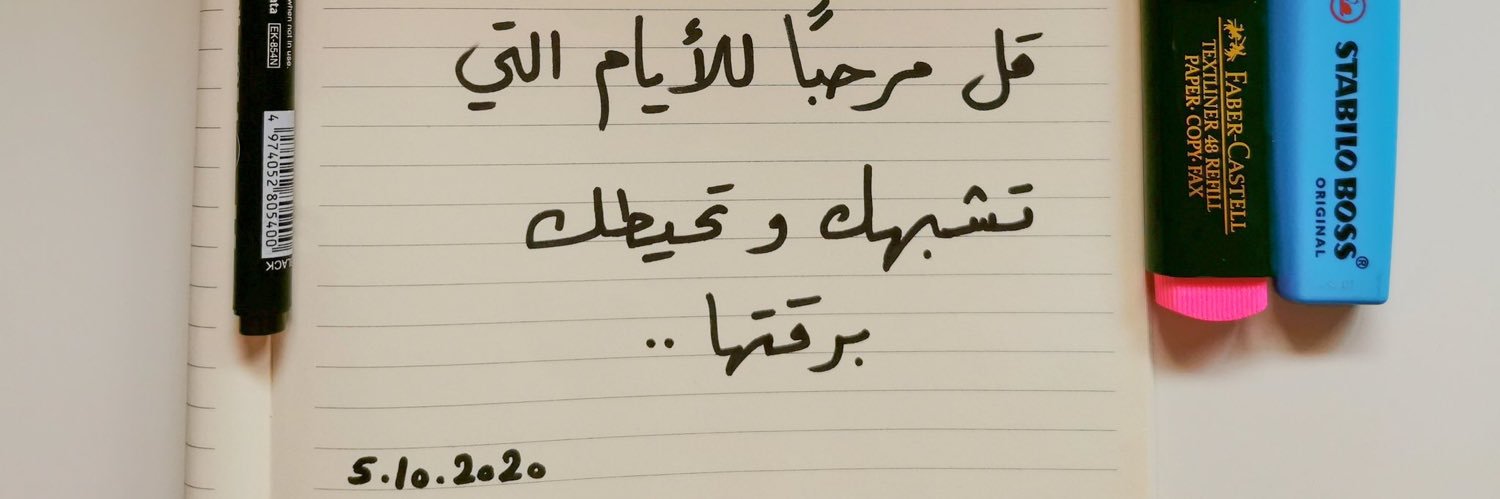 قل مرحبًا للأيام التي
تشبهك و تحيطك
برقتها ..
5.10.2020
when not in use.
ata EK-854N
4 974052 805400
LACK
FABER-CASTELL
TEXTLINER 48 REFILL
PAPER·COPY·FAX
STABILO BOSS®
ORIGINAL